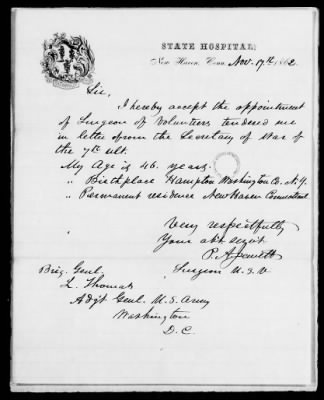 STATE HOSPITAL,
New Haven, Conn. Nov. 17th. 1862
Sir,
I hereby accept the appointment
of Surgeon of Volunteers tendered me
in letter from the Secretary of War of
the 7th ult.
My Age is 46 years.
" Birthplace Hampton Washington Co. N.Y.
" Permanent residence New Haven Connecticut
Very respectfully
Your obt servt
P. A. Jewett
Surgeon U.S.V
Brig. Genl.
L. Thomas
Adjt Genl. U.S. Army
Washington
D.C.